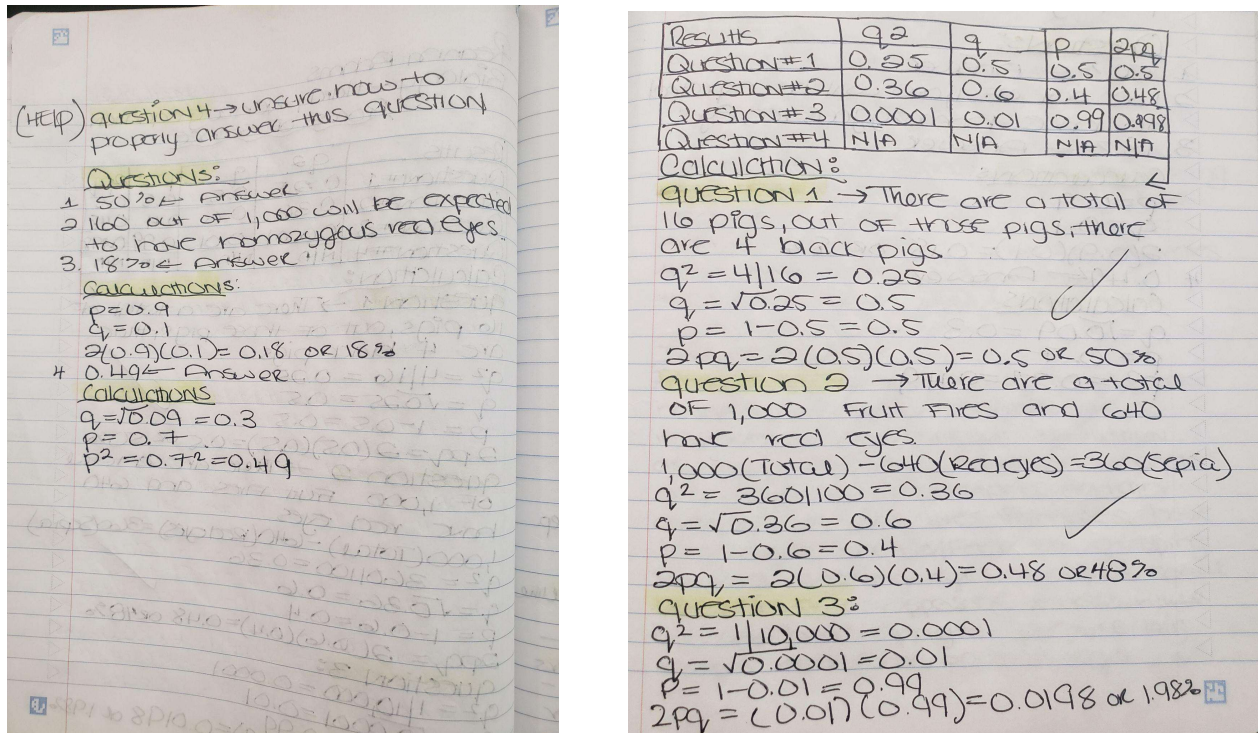 (HELP) question 4 → unsure how to
properly answer this question
Questions:
1 50% ← Answer
2 160 out of 1,000 will be expected
to have homozygous red eyes.
3. 18% ← Answer
Calculations:
p=0.9
q=0.1
2(0.9)(0.1)=0.18 OR 18%
4 0.49 ← Answer
Calculations
q=√0.09 = 0.3
p= 0.7
p² = 0.7² = 0.49
Results q2 q p 2pq
Question #1 0.25 0.5 0.5 0.5
Question #2 0.36 0.6 0.4 0.48
Question #3 0.0001 0.01 0.99 0.198
Question #4 N/A N/A N/A N/A
Calculation:
question 1 → There are a total of
16 pigs, out of those pigs, there
are 4 black pigs
q² = 4/16 = 0.25
q = √0.25 = 0.5
p = 1-0.5 = 0.5
2pq = 2(0.5)(0.5) = 0.5 OR 50%
question 2 → There are a total
of 1,000 Fruit Flies and 640
have red eyes.
1,000 (Total) - 640 (Red eyes) = 360 (Sepia)
q² = 360/100 = 0.36
q = √0.36 = 0.6
p = 1-0.6 = 0.4
2pq = 2(0.6)(0.4) = 0.48 OR 48%
question 3:
q² = 1/10,000 = 0.0001
q = √0.0001 = 0.01
p = 1-0.01 = 0.99
2pq = (0.01)(0.99) = 0.0198 OR 1.98%